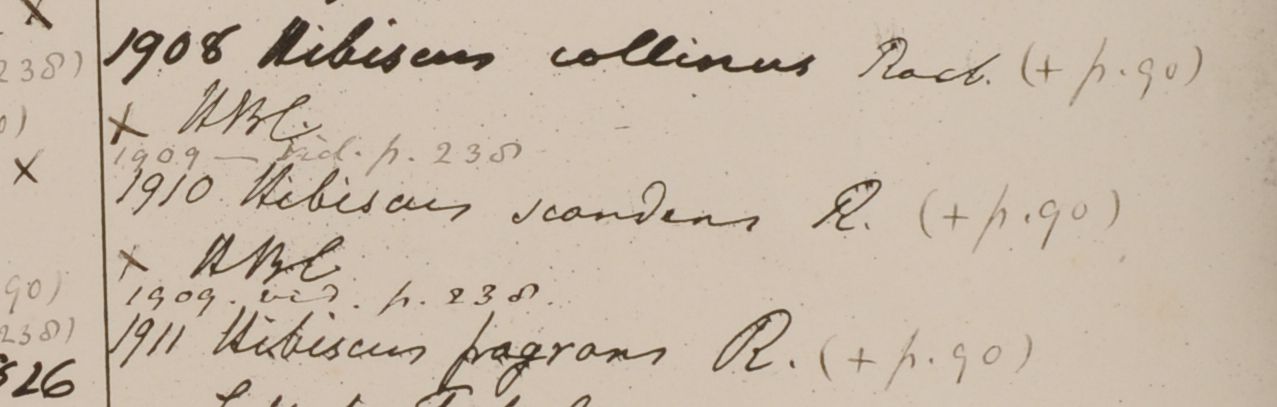 238)
1908 Hibiscus collinus Roxb. (+ p. 90)
x HBC.
1909 — vid. p. 238
x
1910 Hibiscus scandens R. (+ p. 90)
x HBC
90)
1909. vid. p. 238.
238)
1911 Hibiscus fragrans R. (+ p. 90)
326